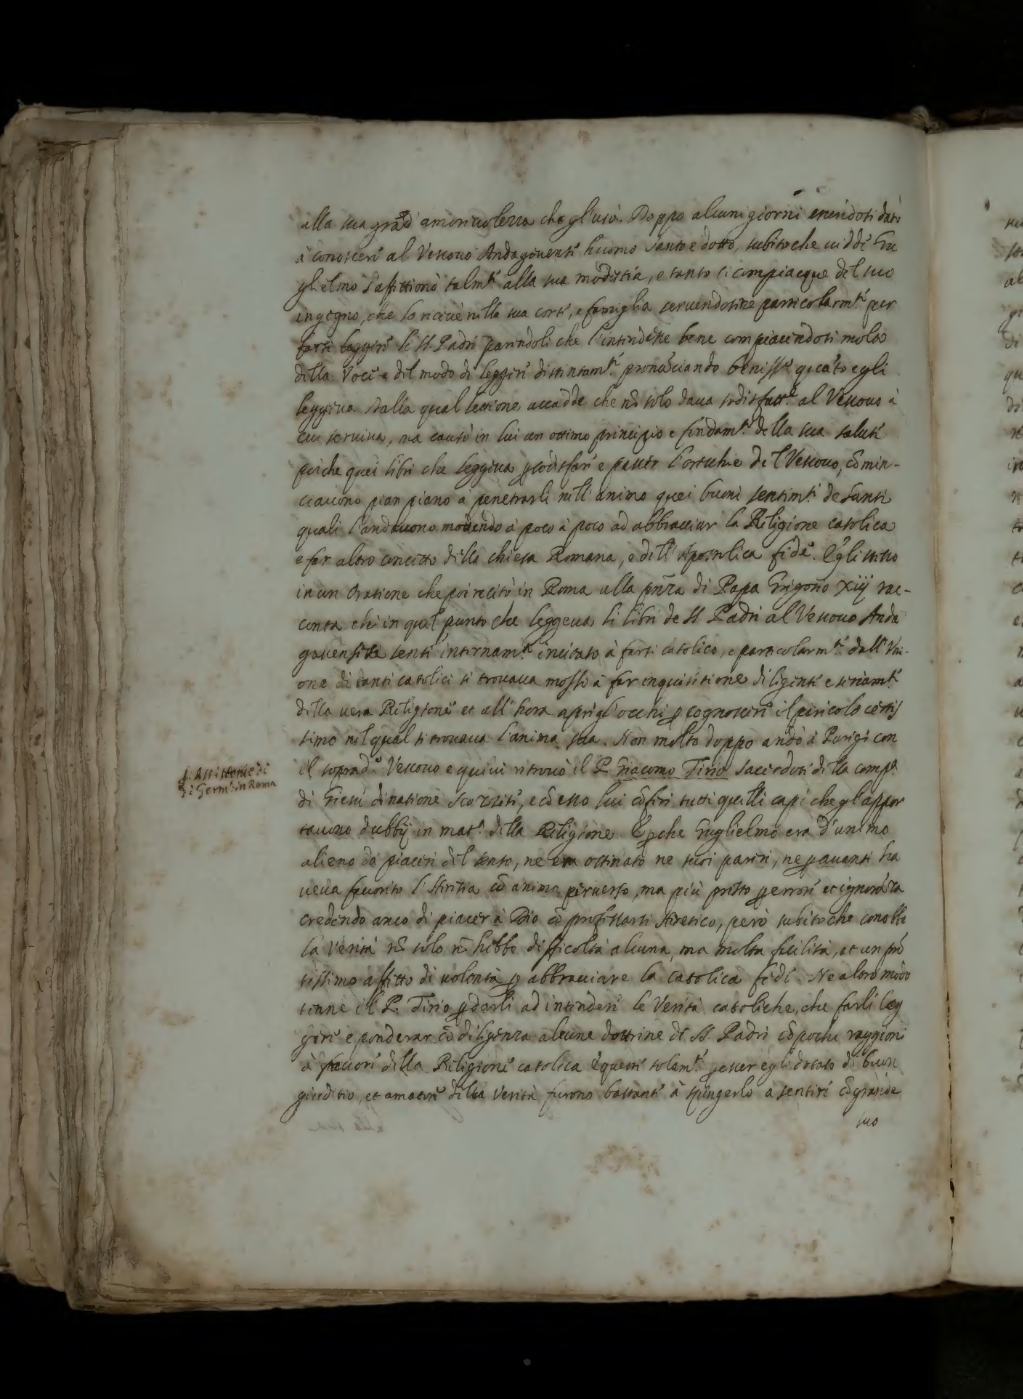 alla sua grād' amorevolezza che gl'usò. Doppo alcuni giorni essendosi dato
à conoscere al Vescovo Andagavense huomo santo e dotto, subito che viddè Gu
glielmo s'affettionò talmte alla sua modestia, e tanto si compiacque del suo
ingegno, che lo ricevè nella sua corte, e famiglia servendosene particolarmte per
farsi leggere li SS. Padri parendoli che l'intendesse bene compiacendosi molto
della voce e del modo di leggere distintamte pronūciando benissio quāto egli
leggeva. Dalla qual lettione accadde che nō solo dava sodisfattne al Vescovo à
cui serviva, ma causò in lui un ottimo principio e fōdamto della sua salute
poiche quei libri che leggeva p sodisfare e pascer l'orecchie del Vescovo, comin-
ciavono pian piano a penetrarli nell'animo quei buoni sentimti de Santi
quali l'andavono movendo à poco à poco ad abbracciar la Religione catolica
e far altro concetto della chiesa Romana, e dell'Apostolica fede. Egli stesso
in un Oratione che poi recitò in Roma alla pñza di Papa Gregorio XIIJ rac-
conta che in quel punto che leggeva li libri de SS Padri al Vescovo Anda
gavense si sentì internamte incitato à farsi catolico, e particolarmte dall'Un-
one di tanti catolici si trovava mosso à far inquisitione diligente e
della vera Religione et all'hora aprì gli occhi p cognoscere il pericolo certis
simo nel qual si trovava l'anima sua. Non molto doppo andò à Parigi con
il sopradto Vescovo e quivi ritrovò il P. Giacomo Tirio sacerdote della compa
di Giesù di natione Scozzese, e cō esso lui cōferì tutti quelli capi che gl'appor
tavono dubbij in mata della Religione. E pche Guglielmo era d'animo
alieno da piaceri del senso, ne era ostinato ne suoi pareri, ne p avanti ha
veva seguito l'heresia cō animo perverso, ma più presto p errore et ignorāza
credendo anco di piacer à Dio cō professarsi heretico, però subito che conobbe
la verità nō solo nō hebbe difficoltà alcuna, ma molta facilità, et un prō
tissimo affetto di volontà p abbracciare la catolica fede. Ne altro modo
tenne il P. Tirio p darli ad intendere le verità catoliche, che farli leg
gere e ponderar cō diligenza alcune dottrine de SS Padri cō poche raggioni
à favore della Religione catolica e queste solamte p esser egli dotato di buon
giuditio, et amatore della verità furono bastanti à spingerlo a sentire cō grande
suo
Assistente di
Germa in Roma